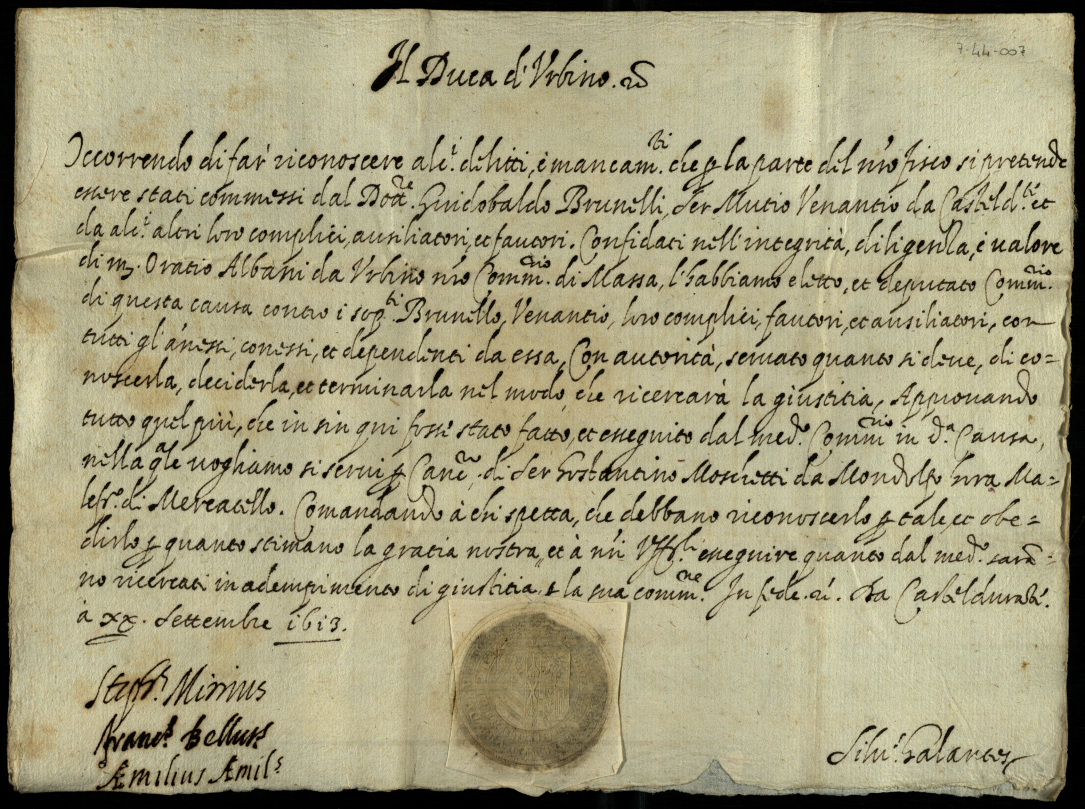 7-44-007
Il Duca d'Urbino. &c
Occorrendo di far' riconoscere alc.i delitti, è mancam.ti che p la parte del nro fisco si pretende
essere stati commessi dal Dott.re Guidobaldo Brunelli, Ser Mutio Venantio da Casteld.te et
da alc.i altri loro complici, ausiliatori, et fautori. Confidati nell'integrità, diligenza, è valore
di m. Oratio Albani da Urbino nro Comm.rio di Massa, l'habbiamo eletto, et deputato Comm.rio
di questa causa contro i sop.ti Brunello, Venantio, loro complici, fautori, et ausiliatori, con
tutti gl'anessi, conessi, et dependenti da essa, Con autorità, servato quanto si deve, di co=
noscerla, deciderla, et terminarla nel modo, che ricercarà la giustitia, Approvando
tutto quel più, che in sin qui fosse stato fatto, et eseguito dal med.o Comm.rio in d.a Causa,
nella qle vogliamo si servi p Canc.re di Ser Costantino Moschetti da Mondolfo hora Ma=
lef.o di Mercatello. Comandando à chi spetta, che debbano riconoscerlo p tale, et obe=
dirlo p quanto stimano la gratia nostra, et à nri Uff.li eseguire quanto dal med.o saran=
no ricercati in adempimento di giustitia, e la sua comm.ne. In fede &c. Da Casteldurate.
à xx. Settembre 1613.
Steph.s Mirrius
Franc.s Bellus
Æmilius Æmil.s
Silv.o